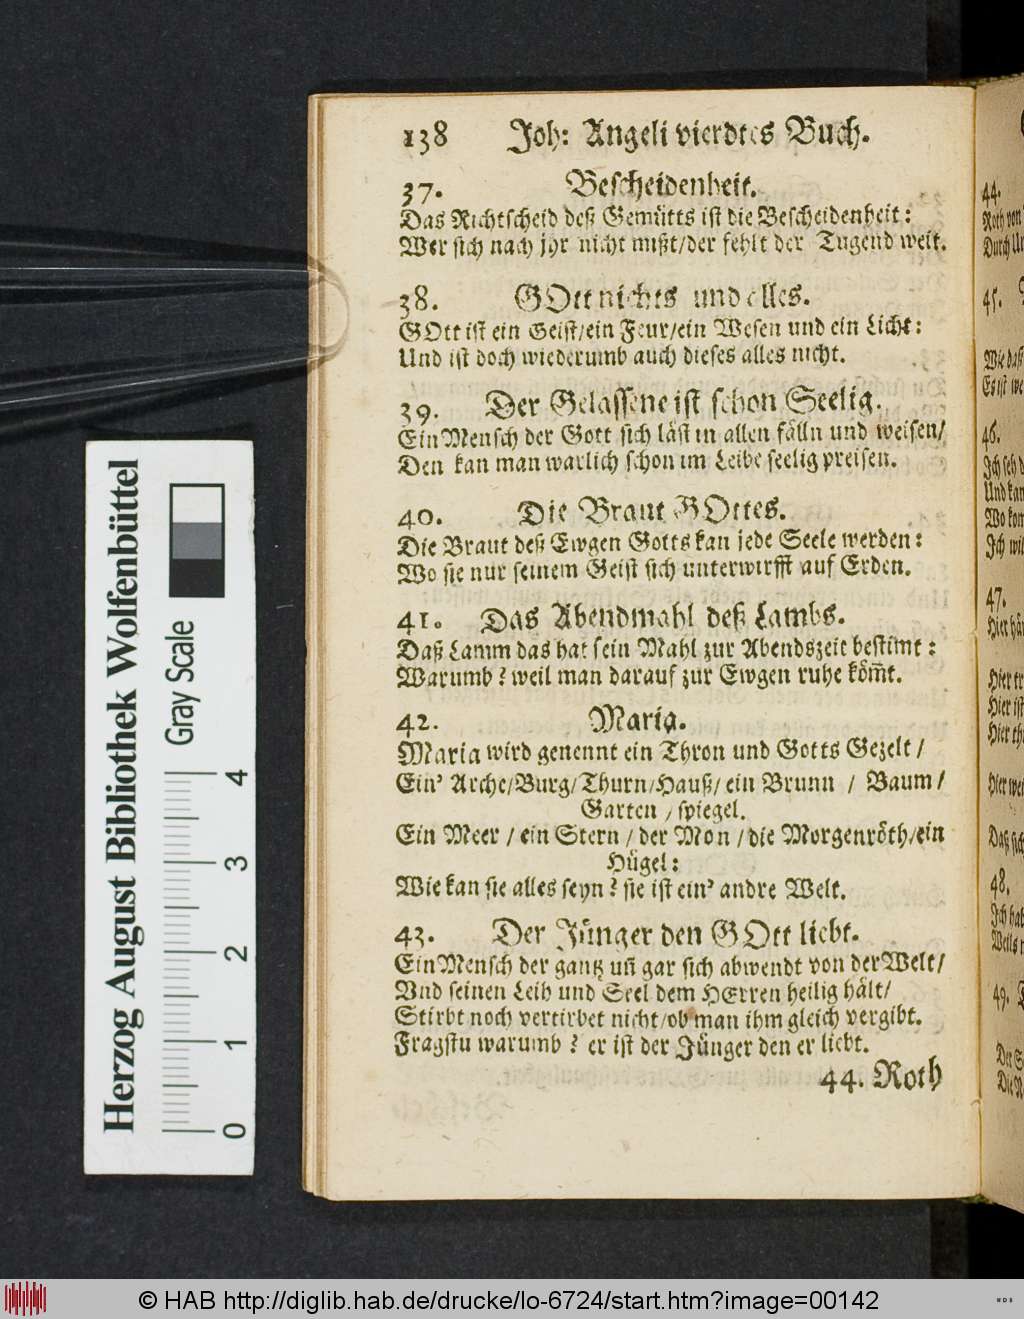 138 Joh: Angeli vierdtes Buch.
37. Bescheidenheit.
Das Richtscheid deß Gemütts ist die Bescheidenheit:
Wer sich nach jhr nicht mißt/der fehlt der Tugend weit.
38. GOtt nichts und alles.
GOtt ist ein Geist/ein Feur/ein Wesen und ein Licht:
Und ist doch wiederumb auch dieses alles nicht.
39. Der Gelassene ist schon Seelig.
Ein Mensch der Gott sich läst in allen fälln und weisen/
Den kan man warlich schon im Leibe seelig preisen.
40. Die Braut GOttes.
Die Braut deß Ewgen Gotts kan jede Seele werden:
Wo sie nur seinem Geist sich unterwirfft auf Erden.
41. Das Abendmahl deß Lambs.
Daß Lamm das hat sein Mahl zur Abendszeit bestimt:
Warumb? weil man darauf zur Ewgen ruhe köm̃t.
42. Maria.
Maria wird genennt ein Thron und Gotts Gezelt /
Ein' Arche/Burg/Thurn/Hauß/ ein Brunn / Baum/
Garten / spiegel.
Ein Meer / ein Stern / der Mon / die Morgenröth/ein
Hügel:
Wie kan sie alles seyn? sie ist ein' andre Welt.
43. Der Jünger den GOtt liebt.
Ein Mensch der gantz uñ gar sich abwendt von der Welt/
Vnd seinen Leib und Seel dem HErren heilig hält/
Stirbt noch vertirbet nicht/ob man ihm gleich vergibt.
Fragstu warumb? er ist der Jünger den er liebt.
44. Roth
44.
Roth von
45.
Wie daß
46.
Und kan
47.
Hier
Hier ist
48.
49.
Herzog August Bibliothek Wolfenbüttel
Gray Scale
0 1 2 3 4
© HAB http://diglib.hab.de/drucke/lo-6724/start.htm?image=00142
WDB